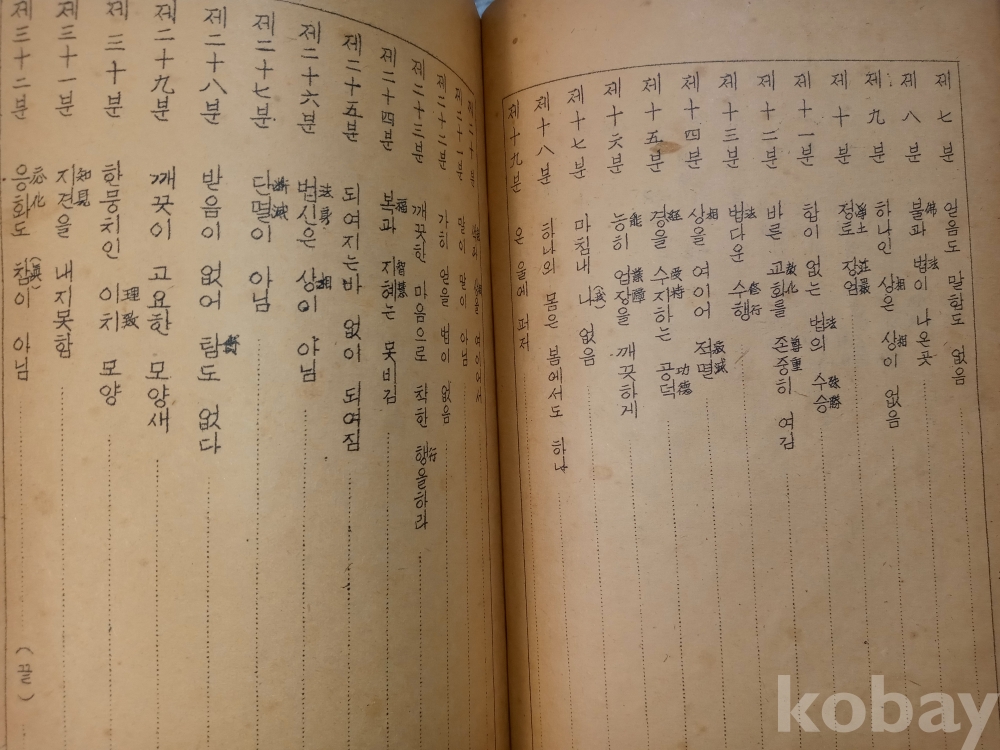 제 七 분 얻음도 말함도 없음
제 八 분 불佛과 법法이 나온곳
제 九 분 하나인 상相은 상相이 없음
제 十 분 정토淨土 장엄莊嚴
제 十一 분 함이 없는 법法의 수승殊勝
제 十二 분 바른 교화敎化를 존중尊重히 여김
제 十三 분 법法다운 수행修行
제 十四 분 상相을 여이어 적멸寂滅
제 十五 분 경經을 수지受持하는 공덕功德
제 十六 분 능能히 업장業障을 깨끗하게
제 十七 분 마침내 나(我) 없음
제 十八 분 하나의 몸은 봄에서도 하나
제 十九 분 은 을에 펴저
제 二十 분 여이어서
제 二十一 분 말이 말이 아님
제 二十二 분 가히 얻을 법이 없음
제 二十三 분 깨끗한 마음으로 착한 행行을하라
제 二十四 분 복福과 지혜智慧는 못비김
제 二十五 분 되여지는바 없이 되여짐
제 二十六 분 법신法身은 상相이 아님
제 二十七 분 단멸斷滅이 아님
제 二十八 분 받음이 없어 탐貪도 없다
제 二十九 분 깨끗이 고요한 모양새
제 三十 분 한뭉치인 이치理致 모양
제 三十一 분 지견知見을 내지못함
제 三十二 분 응화應化도 참(眞)이 아님 (끝)
kobay